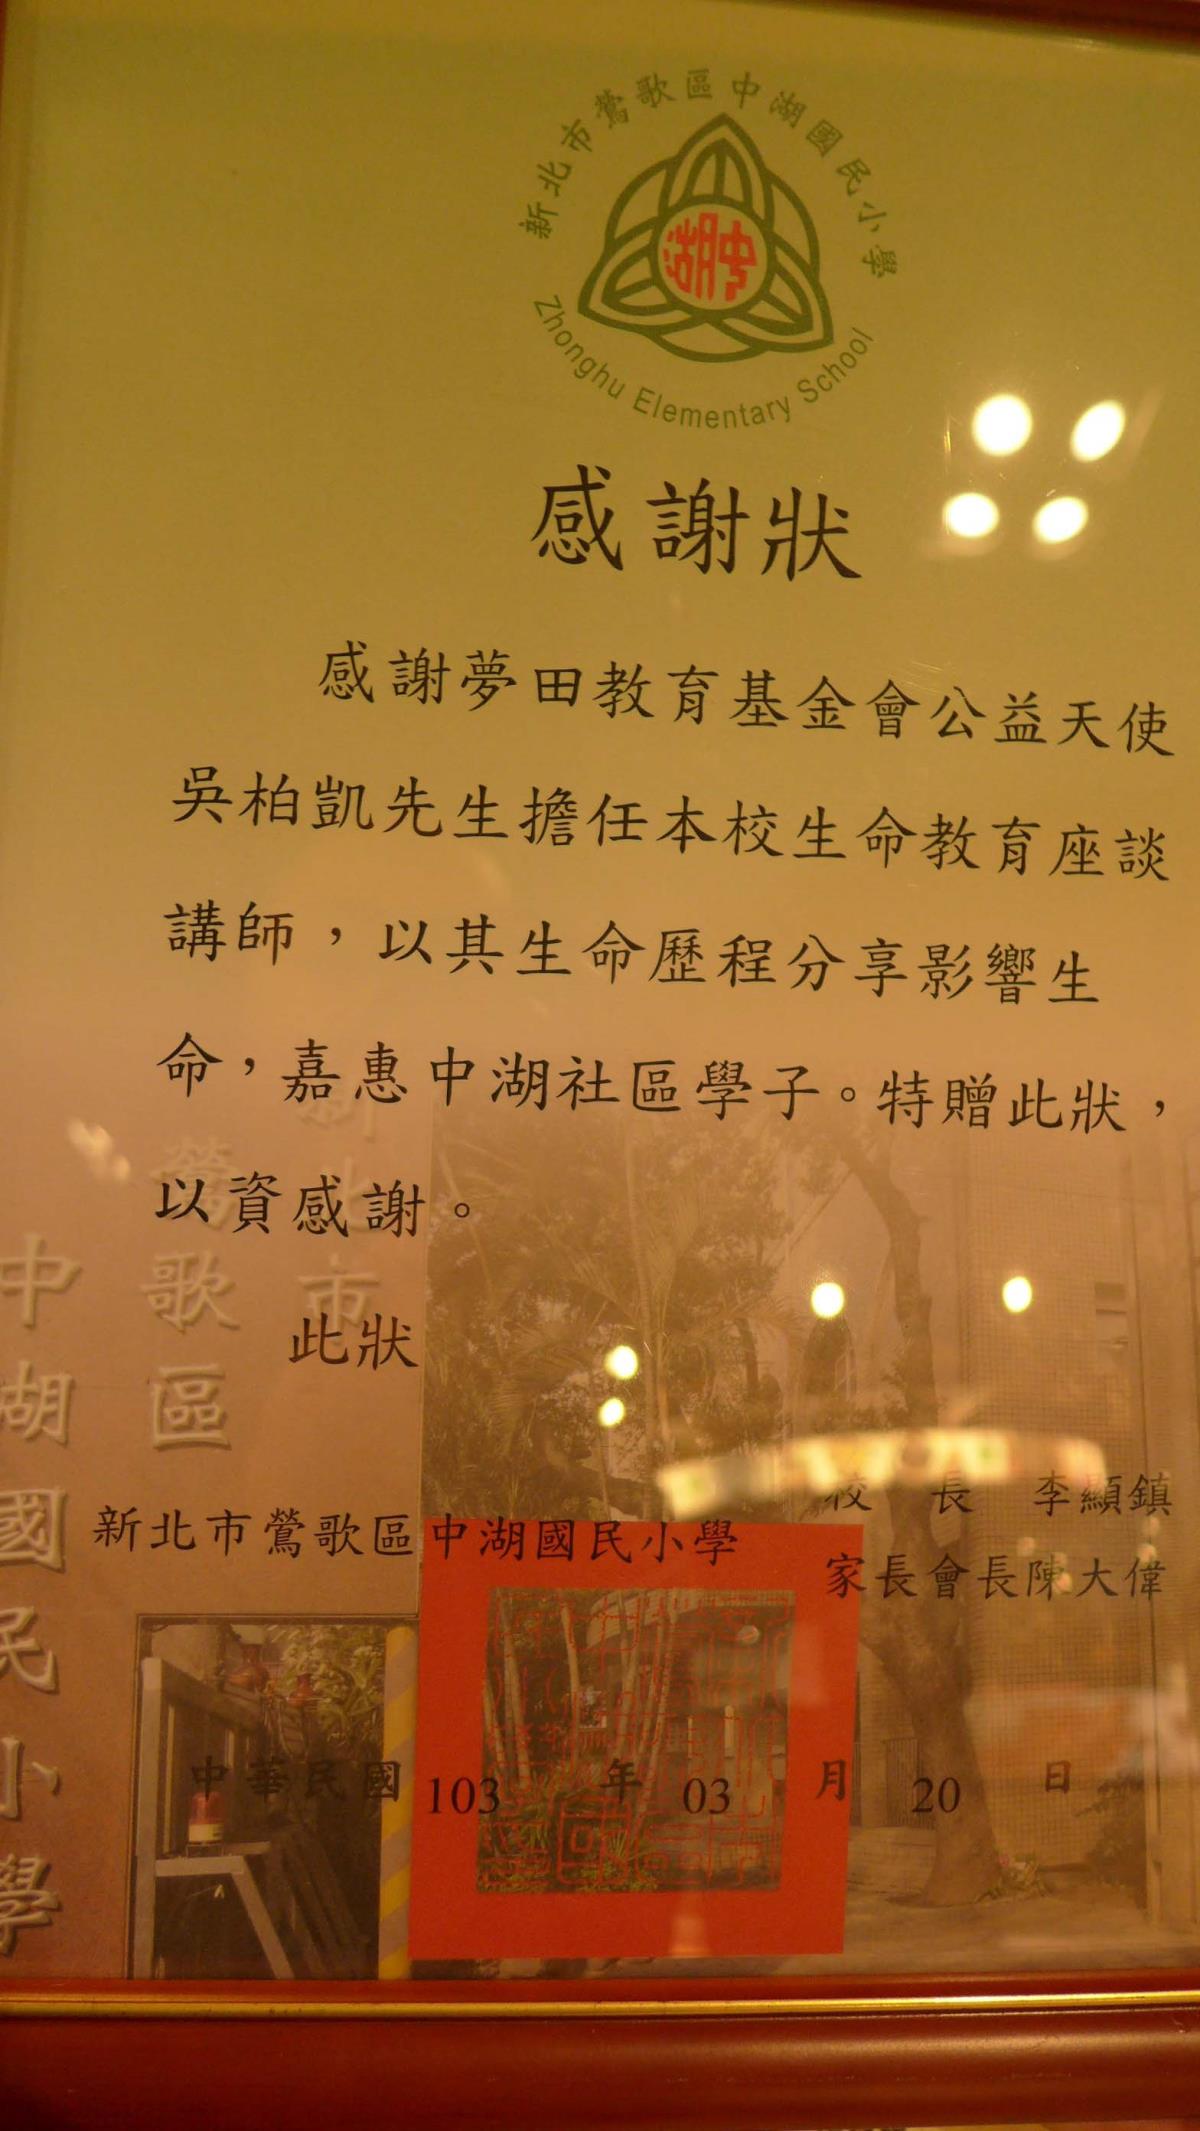 新北市鶯歌區中湖國民小學
中湖
Zhonghu Elementary School
感謝狀
感謝夢田教育基金會公益天使
吳柏凱先生擔任本校生命教育座談
講師，以其生命歷程分享影響生
命，嘉惠中湖社區學子。特贈此狀，
以資感謝。
此狀
新北市
鶯歌區
中湖國民小學
校長 李顯鎮
新北市鶯歌區中湖國民小學
家長會長陳大偉
中華民國103年03月20日